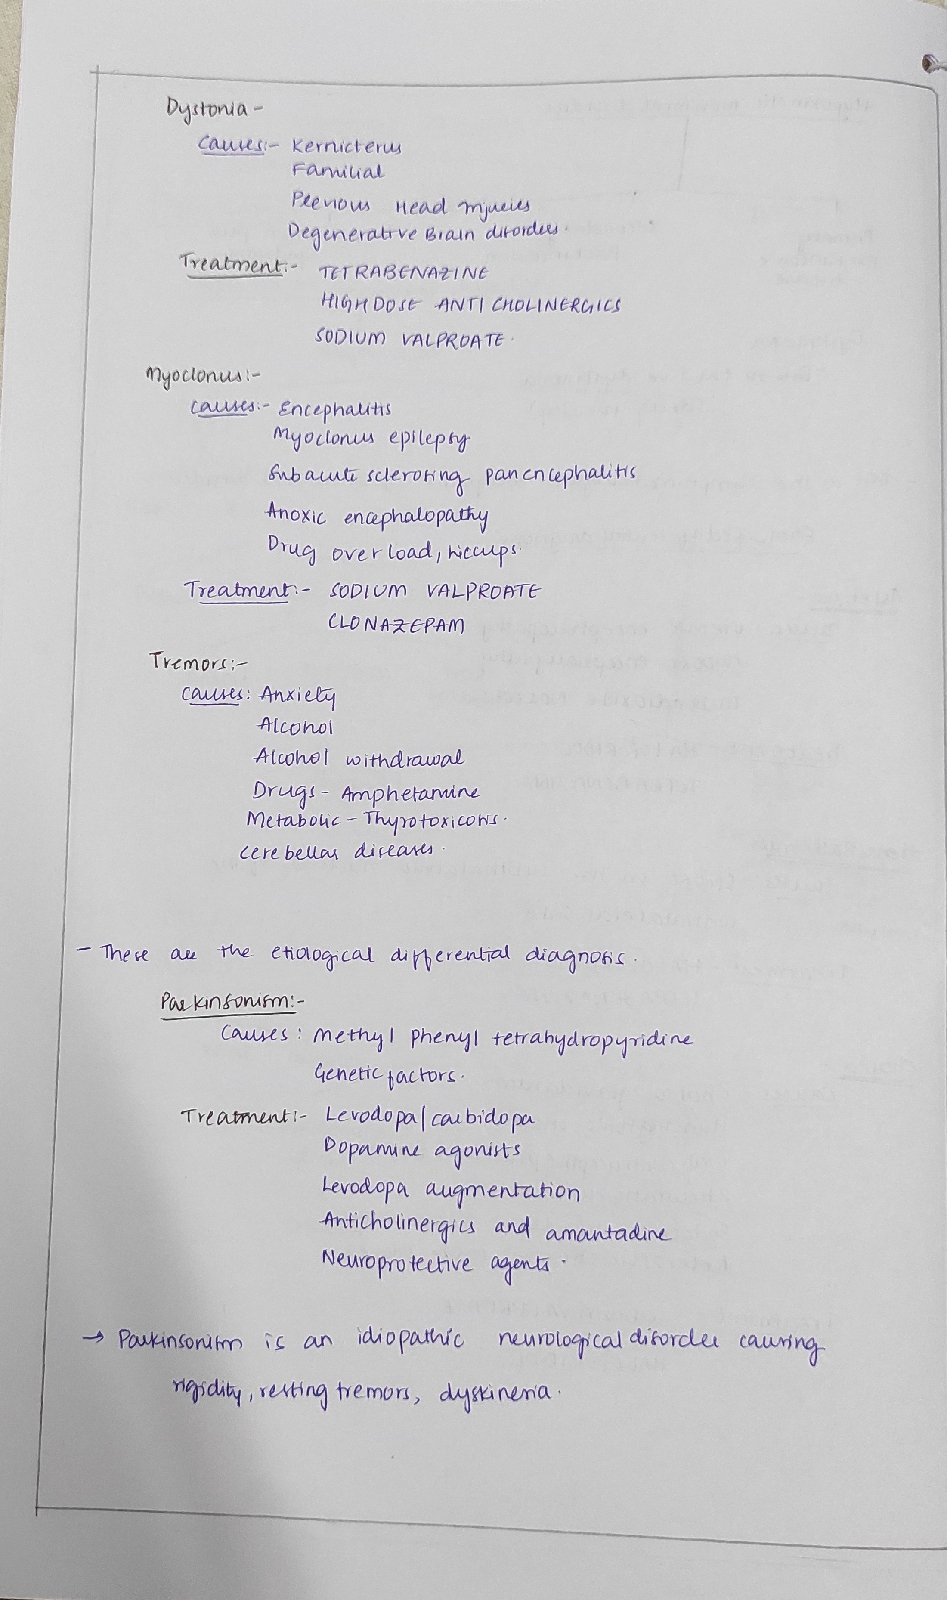 Dystonia -
Causes:- Kernicterus
Familial
Previous Head Injuries
Degenerative Brain disorders.
Treatment:- TETRABENAZINE
HIGH DOSE ANTI CHOLINERGICS
SODIUM VALPROATE.
Myoclonus:-
Causes:- Encephalitis
Myoclonus epilepsy
Subacute sclerosing panencephalitis
Anoxic encephalopathy
Drug overload, hiccups.
Treatment:- SODIUM VALPROATE
CLONAZEPAM
Tremors:-
Causes: Anxiety
Alcohol
Alcohol withdrawal
Drugs - Amphetamine
Metabolic - Thyrotoxicosis.
Cerebellar diseases.
- These are the etiological differential diagnosis.
Parkinsonism:-
Causes: Methyl phenyl tetrahydropyridine
Genetic factors.
Treatment:- Levodopa/carbidopa
Dopamine agonists
Levodopa augmentation
Anticholinergics and amantadine
Neuroprotective agents.
→ Parkinsonism is an idiopathic neurological disorder causing
rigidity, resting tremors, dyskinesia.